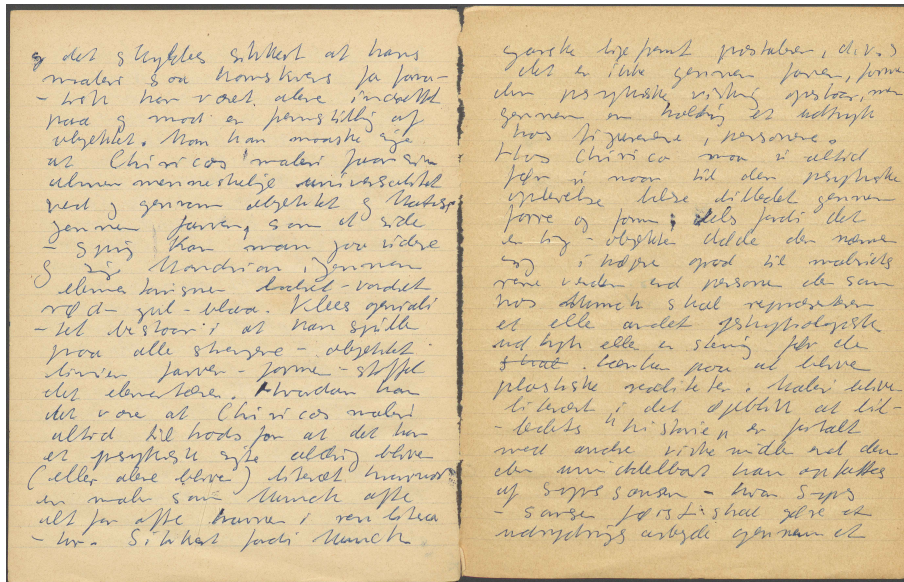 og det skyldes sikkert at hans
maleri saa
har været mere indsatt
paa og mod en fremstilling af
objektet. Man kan maaske sige
at Chiricos maleri faar sin
almen menneskelige universalitet
ved og gennem objektet og Matisse
gennem farven, som et side
-spring kan man gaa videre
og sige Mondrian, gennem
lodret-vandret
rød-gul-blaa. Klees geniali
-tet bestaar i at han spiller
paa alle strengene - objektet
linien farver - forme - stoffet
det elementære. Hvordan kan
det være at Chiricos maleri
altid til trods for at det har
et psykisk aldrig bliver
(eller bliver) literært hvorimod
en maler som Munch ofte
alt for ofte havner i ren litera
-tur. Sikkert fordi Munch
ganske ligefremt
det er ikke gennem farven, formen
den psykiske virkning opstaar, men
gennem en holdning et udtryk
hos figurerne, personerne.
Hos Chirico maa vi altid
før vi naar til den psykiske
oplevelse læse billedet gennem
farve og form, dels fordi det
er ting - objekter
sig i højere grad til maleriets
rene verden end personen der som
hos Munch skal repræsentere
et eller andet psykologisk
udtryk eller en stemning før de
tænker paa at blive
plastiske realiteter. Maleri bliver
literært i det øjeblik at bil-
-ledets "historie" er fortalt
med andre virkemidler end den
der umiddelbart kan opfattes
af synssansen - hvor syns
-sansen først skal gøre et
arbejde gennem et